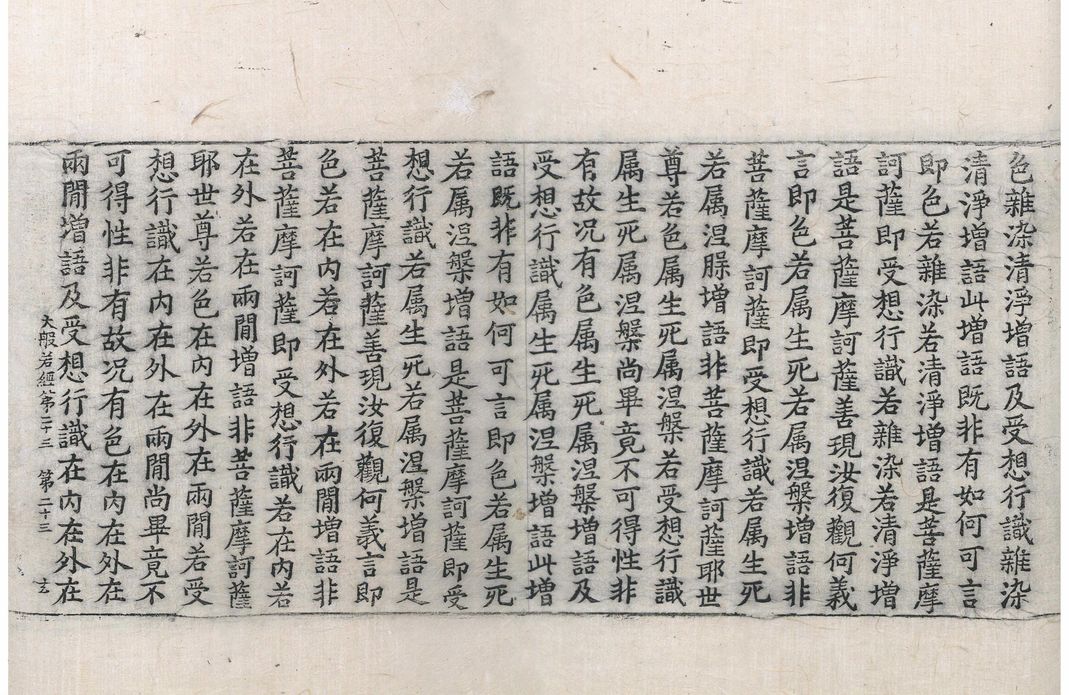 色雜染清淨増語及受想行識雜染
清淨増語此増語既非有如何可言
即色若雜染若清淨増語是菩薩摩
訶薩即受想行識若雜染若清淨増
語是菩薩摩訶薩善現汝復觀何義
言即色若属生死若属涅槃增語非
菩薩摩訶薩即受想行識若属生死
若属涅槃増語非菩薩摩訶薩耶世
尊若色属生死属涅槃若受想行識
属生死属涅槃尚畢竟不可得性非
有故况有色属生死属涅槃増語及
受想行識属生死属涅槃增語此增
語既非有如何可言即色若属生死
若属涅槃増語是菩薩摩訶薩即受
想行識若属生死若属涅槃増語是
菩薩摩訶薩善現汝復觀何義言即
色若在内若在外若在兩閒増語非
菩薩摩訶薩即受想行識若在内若
在外若在兩閒增語非菩薩摩訶薩
耶世尊若色在内在外在兩閒若受
想行識在内在外在兩閒尚畢竟不
可得性非有故况有色在内在外在
兩閒増語及受想行識在内在外在
大般若經第二十三 第二十三